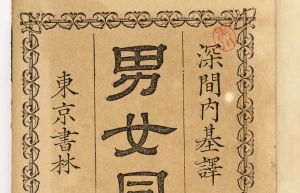 深間內基譯
男女同
東京書林